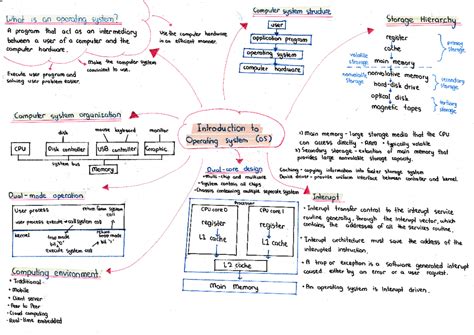 What is an operating system?
A program that act as an intermediary
between a user of a computer and the
computer hardware.
Use the computer hardware
in an efficient manner.
Make the computer system
convinient to use.
Execute user program and
solving user problem easier.
Computer system structure
user
application program
operating system
computer hardware
Storage Hierarchy
register
cache
main memory
nonvolatile memory
hard-disk drive
optical disk
magnetic tapes
volatile
storage
nonvolatile
storage
primary
storage
secondary
storage
tertiary
storage
Computer system organization
disk
mouse keyboard
monitor
CPU
Disk controller
USB controller
Graphic
system bus
Memory
Introduction to
Operating system (OS)
1) Main memory - large storage media that the CPU
can access directly - RAM - typically volatile
2) Secondary storage - extention of main memory that
provides large nonvolatile storage capacity.
Caching - copying information into faster storage system
Device driver - provides uniform interface between controller and kernel.
Dual-core design
• Multi-chip and multicore
• System contains all chips
• Chassis containing multiple separate system
Processor
CPU core 0
register
L1 cache
CPU core 1
register
L1 cache
L2 cache
Main Memory
Dual-mode operation
User process
user process execute
call system
return from system
call
kernel
trap mode
bit "0"
return mode
bit "1"
Execute system call
Interrupt
• Interrupt transfer control to the interrupt service
routine generally, through the interrupt vector, which
contains the addresses of all the services routine.
• Interrupt architecture must save the address of the
interrupted instruction.
• A trap or exception is a software generated interrupt
caused either by an error or a user request.
• An operating system is Interrupt driven.
Computing environment
• Traditional
• Mobile
• Client server
• Peer to Peer
• Cloud computing
• Real-time embedded